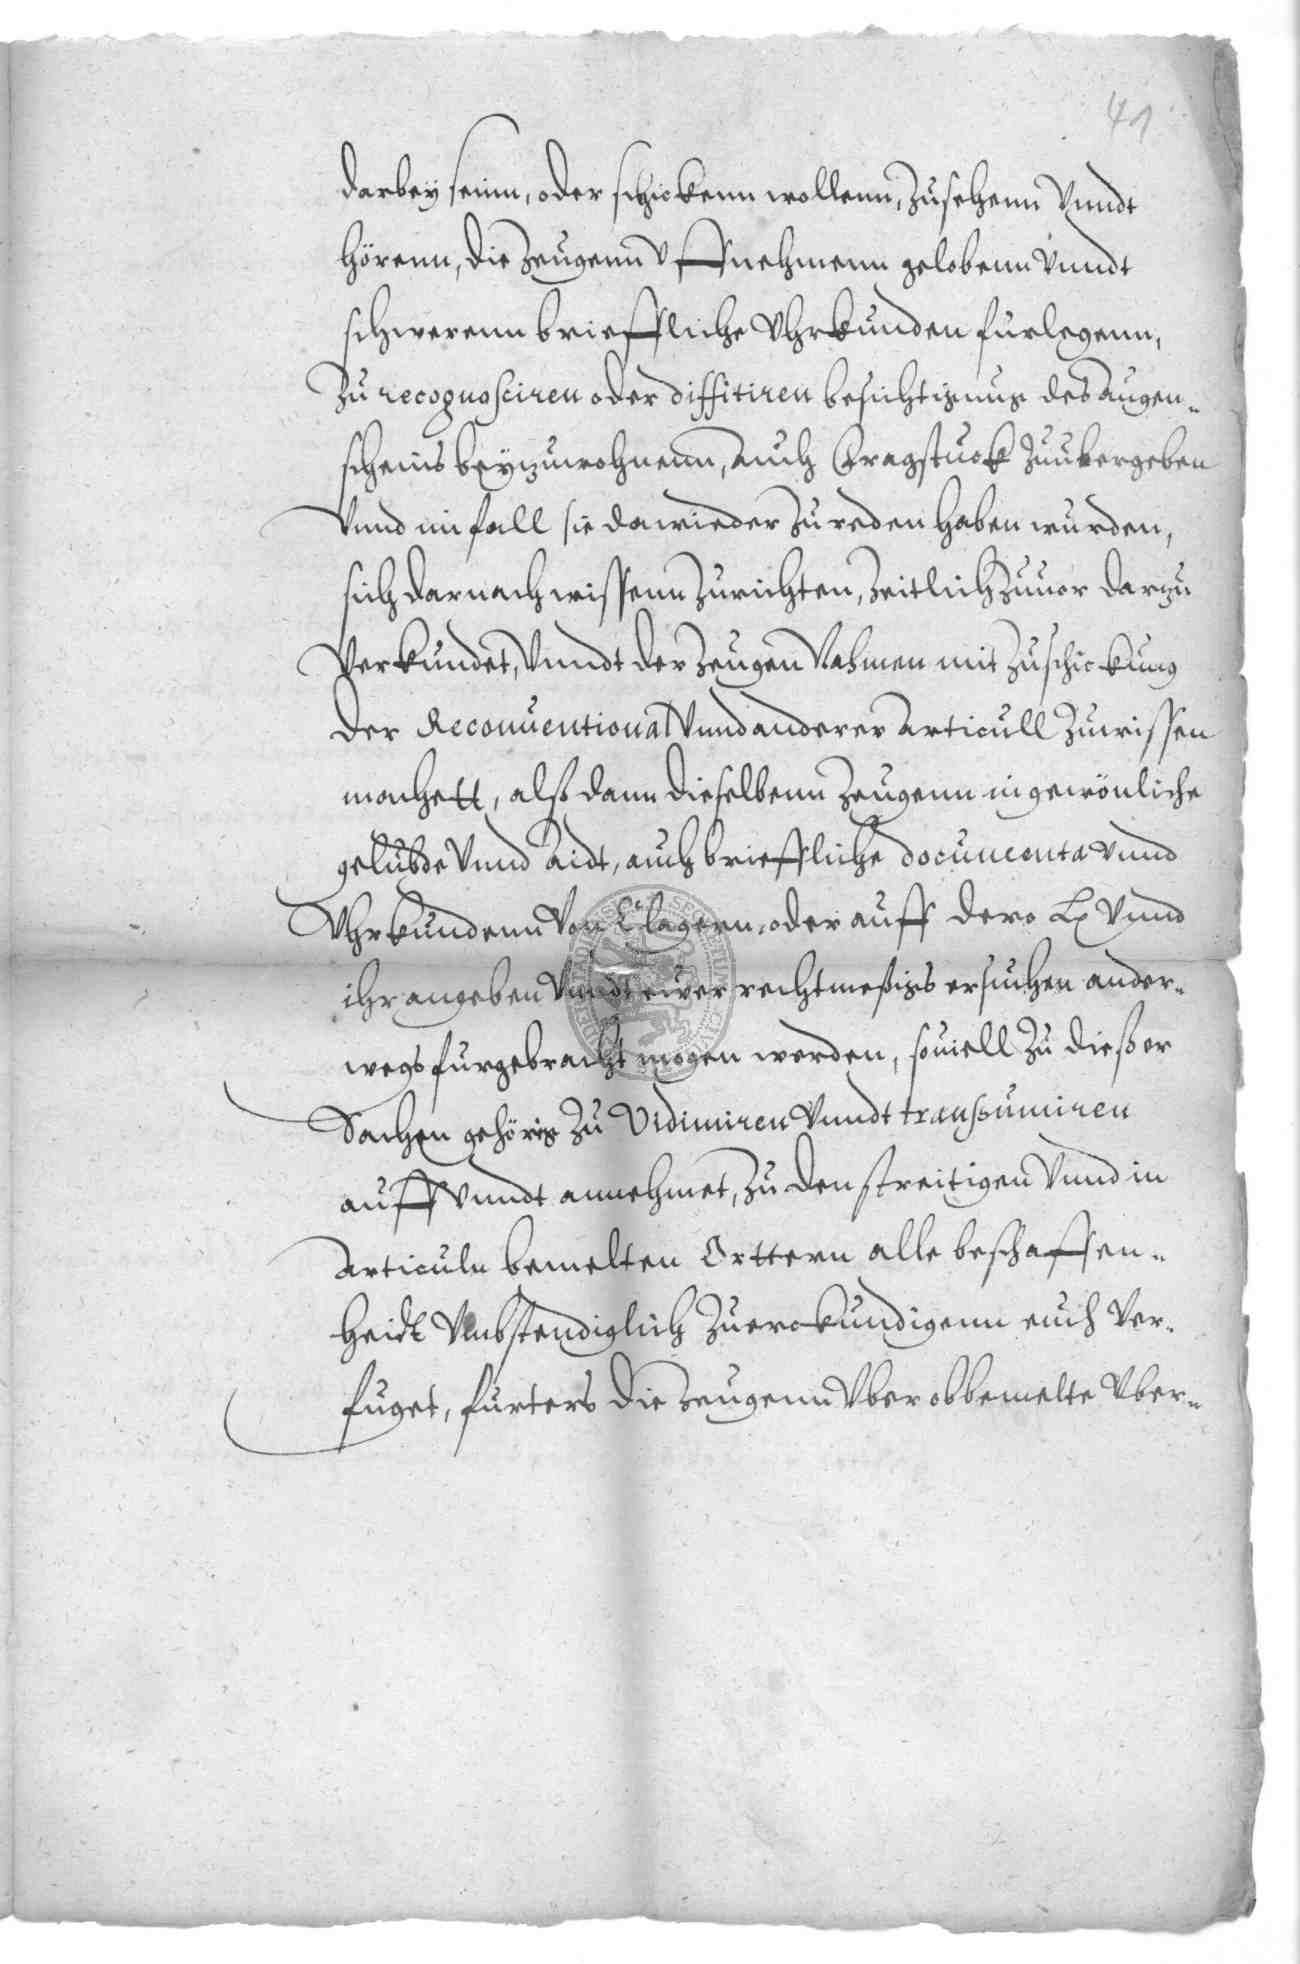 41
darbey seinn, oder schickenn wollenn, Zusehenn Vnndt
hörenn, die Zeugenn vffnehmenn gelobenn Vnndt
schwerenn brieffliche Vhrkunden furlegenn,
Zu recognosciren oder diffitiren besichtigung des augen-
scheins beyzuwohnenn, auch Fragstuck Zuubergeben
Vnnd im fall sie dawieder Zureden haben wurden,
sich darnach wissenn Zurichten, Zeitlich Zuuor darzu
Verkundet, Vnndt der Zeugen Nahmen mit Zuschickung
der Reconuentional Vnnd anderer Articull Zuwissen
machett, alß dann dieselbenn Zeugenn in gewönliche
gelubde Vnnd Aidt, auch brieffliche documenta vnnd
Vhrkundenn Von Clagern, oder auff dero L Vnnd
ihr angeben Vnndt ewer rechtmeßigs ersuchen ander-
wegs furgebracht mogen werden, souiell Zu dießer
Sachen gehörig Zu Vidimiren Vnndt transsumiren
auff Vnndt annehmet, Zu den streitigen Vnnd in
Articuln bemelten Orttern alle beschaffen-
heidt Vmbstendiglich Zuerckundigenn euch Ver-
fuget, furters die Zeugenn Vber obbemelte Vber-